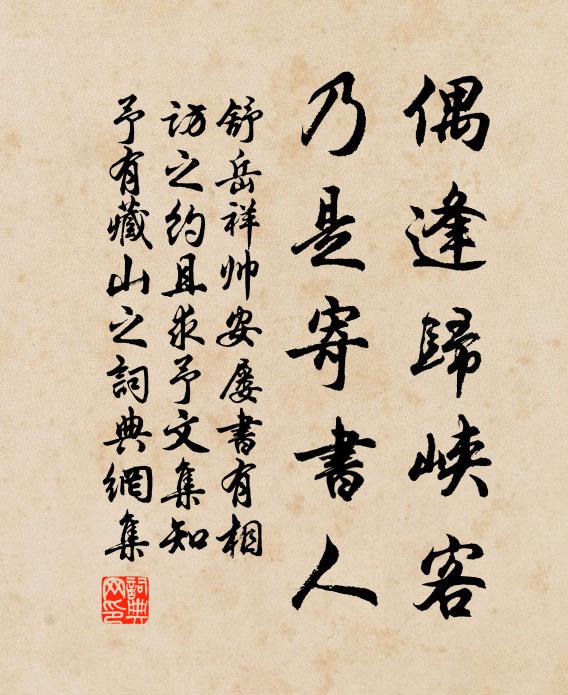 偶逢歸峽客
乃是寄書人
舒岳祥帅安屡書有相
访之约且求予文集知
予有藏山之詞典網集
詞典网印